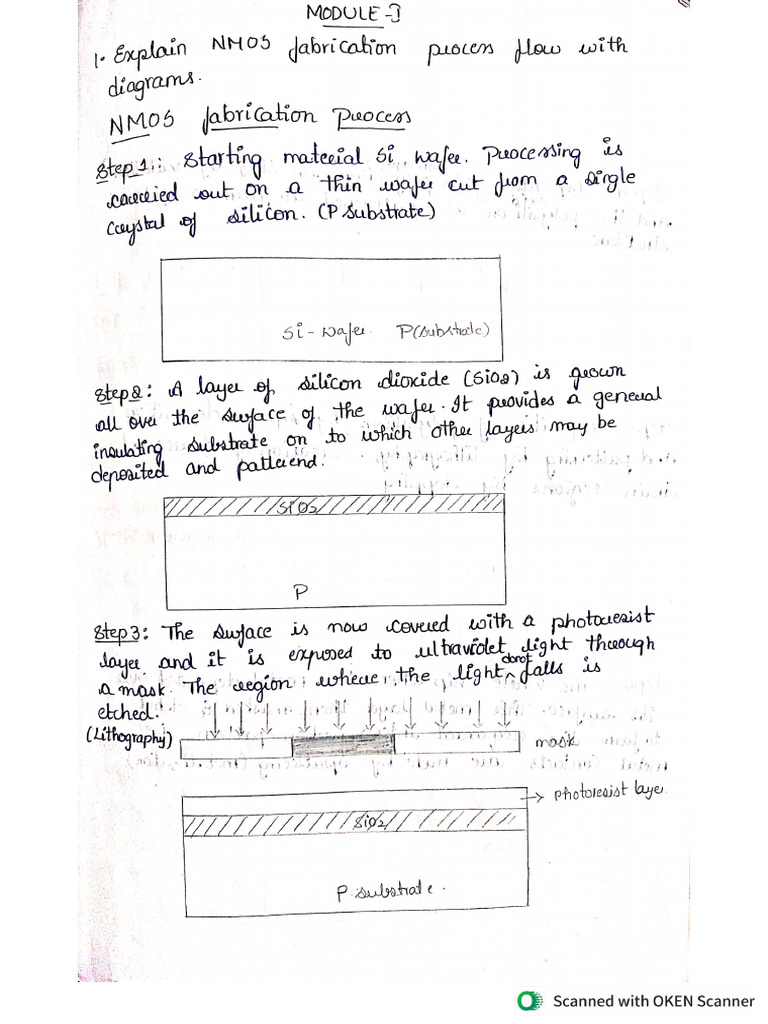 MODULE-I
1. Explain NMOS fabrication process flow with
diagrams.
NMOS fabrication Process
Step 1: Starting material Si wafer. Processing is
carried out on a thin wafer cut from a single
crystal of silicon. (P Substrate)
Si-wafer P(substrate)
Step 2: A layer of silicon dioxide (SiO2) is grown
all over the surface of the wafer. It provides a general
insulating substrate on to which other layers may be
deposited and patterend.
SiO2
P
Step 3: The surface is now covered with a photoresist
layer and it is exposed to ultraviolet light through
a mask. The region where, the light donot falls is
etched.
(Lithography)
mask
photoresist layer
SiO2
P substrate.
Scanned with OKEN Scanner